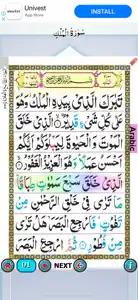 Univest
App Store
INSTALL
سُورَةُ الْمُلْكِ
تَبٰرَكَ الَّذِىْ بِيَدِهِ الْمُلْكُ وَهُوَ
عَلٰى كُلِّ شَىْءٍ قَدِيْرٌ الَّذِىْ خَلَقَ
الْمَوْتَ وَالْحَيٰوةَ لِيَبْلُوَكُمْ اَيُّكُمْ
اَحْسَنُ عَمَلًا وَهُوَ الْعَزِيْزُ الْغَفُوْرُ
الَّذِىْ خَلَقَ سَبْعَ سَمٰوٰتٍ طِبَاقًا
مَا تَرٰى فِىْ خَلْقِ الرَّحْمٰنِ مِنْ
تَفٰوُتٍ فَارْجِعِ الْبَصَرَ هَلْ تَرٰى
مِنْ فُطُوْرٍ ثُمَّ ارْجِعِ الْبَصَرَ
Arabic
NEXT